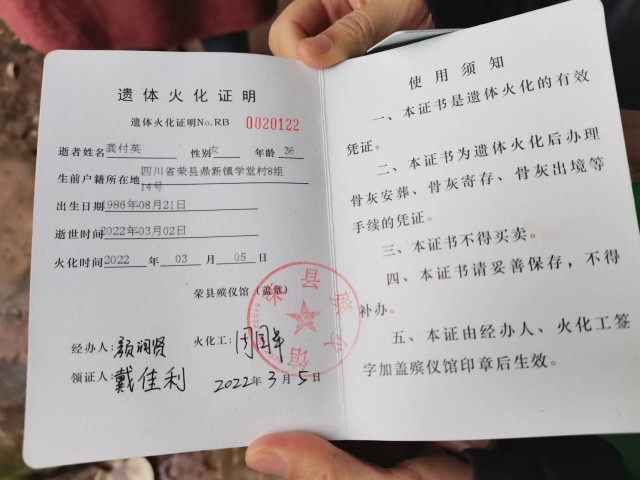 遗体火化证明
遗体火化证明No.RB 0020122
逝者姓名 龚付英 性别 女 年龄 36
生前户籍所在地 四川省荣县鼎新镇学堂村8组
14号
出生日期 986年08月21日
逝世时间 2022年03月02日
火化时间 2022 年 03 月 05 日
荣县殡仪馆（盖章）
荣县殡仪馆
经办人: 颜润贤 火化工: 周国年
领证人: 戴佳利 2022年3月5日
使用须知
一、本证书是遗体火化的有效
凭证。
二、本证书为遗体火化后办理
骨灰安葬、骨灰寄存、骨灰出境等
手续的凭证。
三、本证书不得买卖。
四、本证书请妥善保存，不得
补办。
五、本证由经办人、火化工签
字加盖殡仪馆印章后生效。